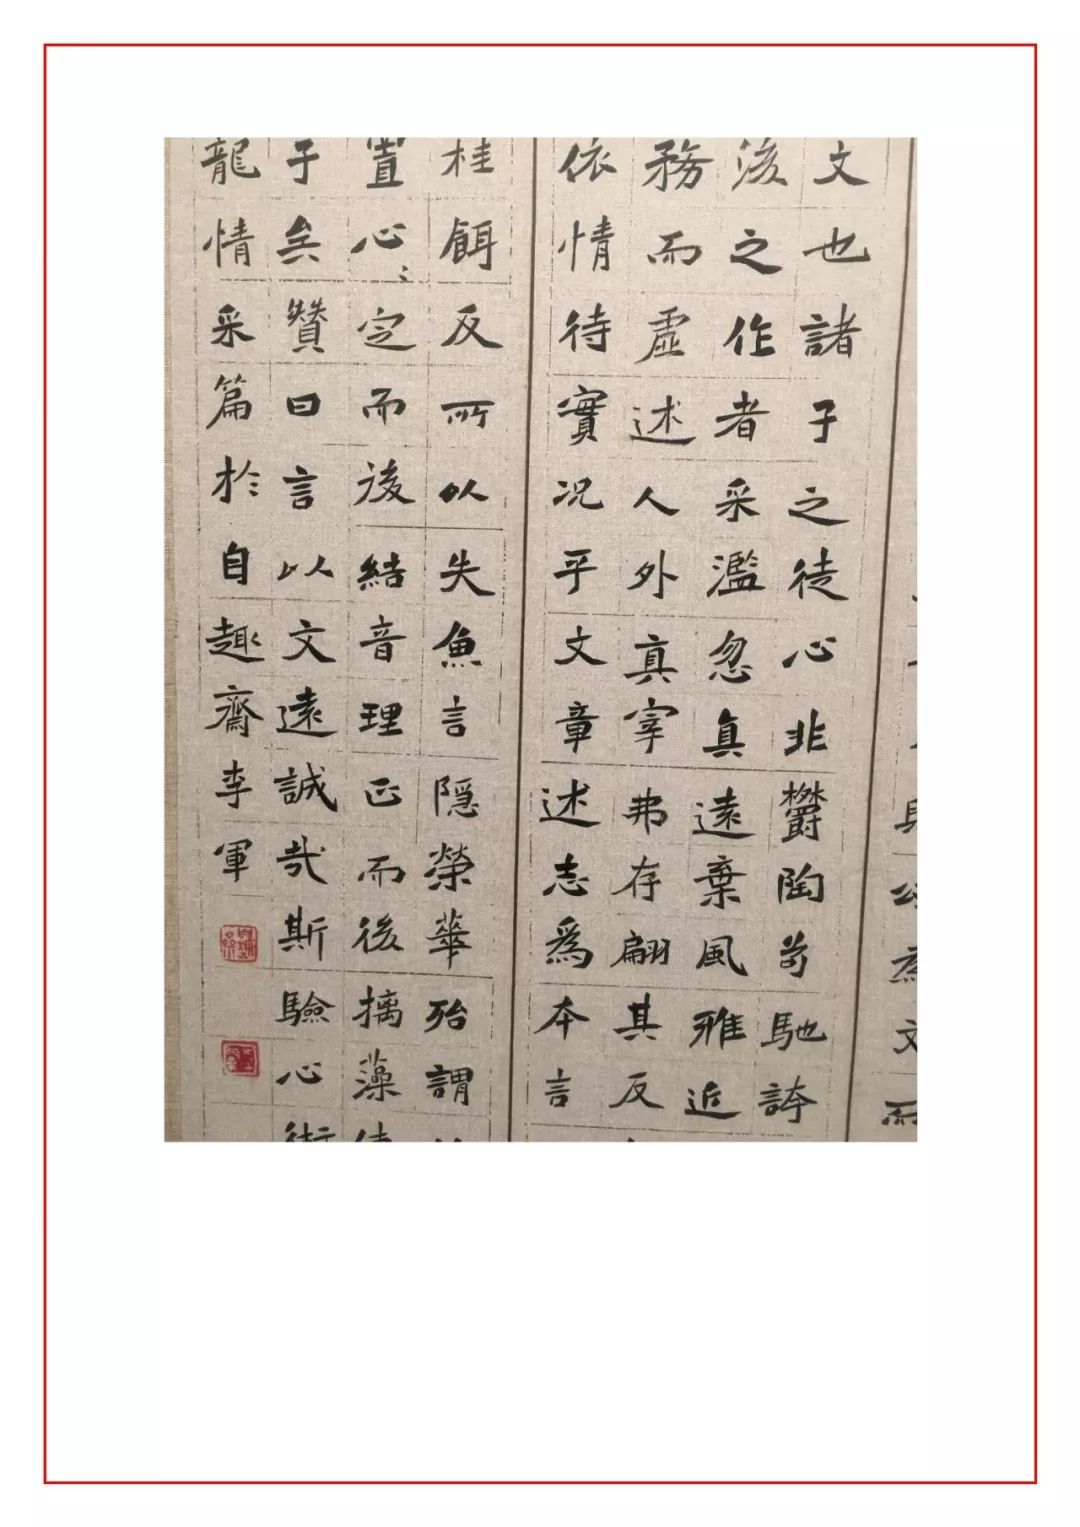 為文而
文也諸子之徒心非欝陶苟馳誇
後之作者采濫忽真遠棄風雅近
務而虛述人外真宰弗存翩其反
依情待實况乎文章述志為本言
桂餌反所以失魚言隱榮華殆謂
置心〻定而後結音理正而後摛藻
子矣贊曰言以文遠誠哉斯驗心術
龍情采篇於自趣齋李軍